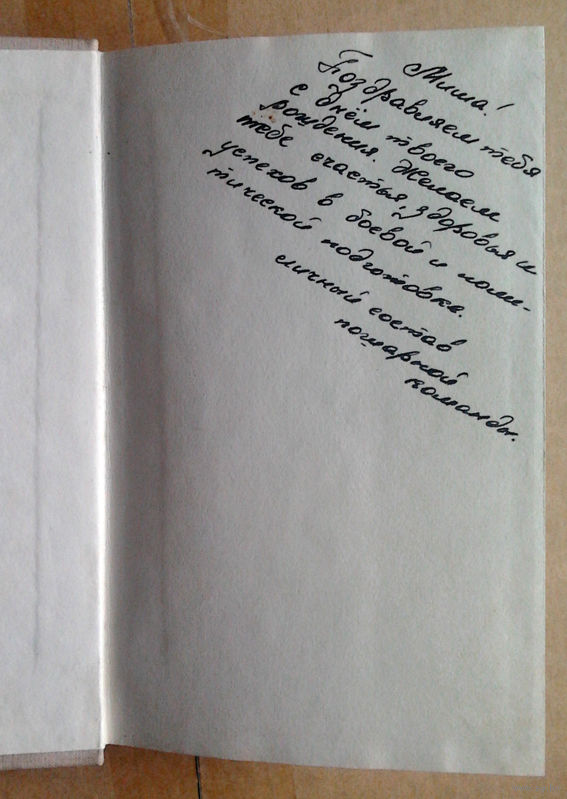 Миша!
Поздравляем тебя
с днём твоего
рождения. Желаем
тебе счастья, здоровья и
успехов в боевой и поли-
тической подготовке.
личный состав
пожарной
команды.